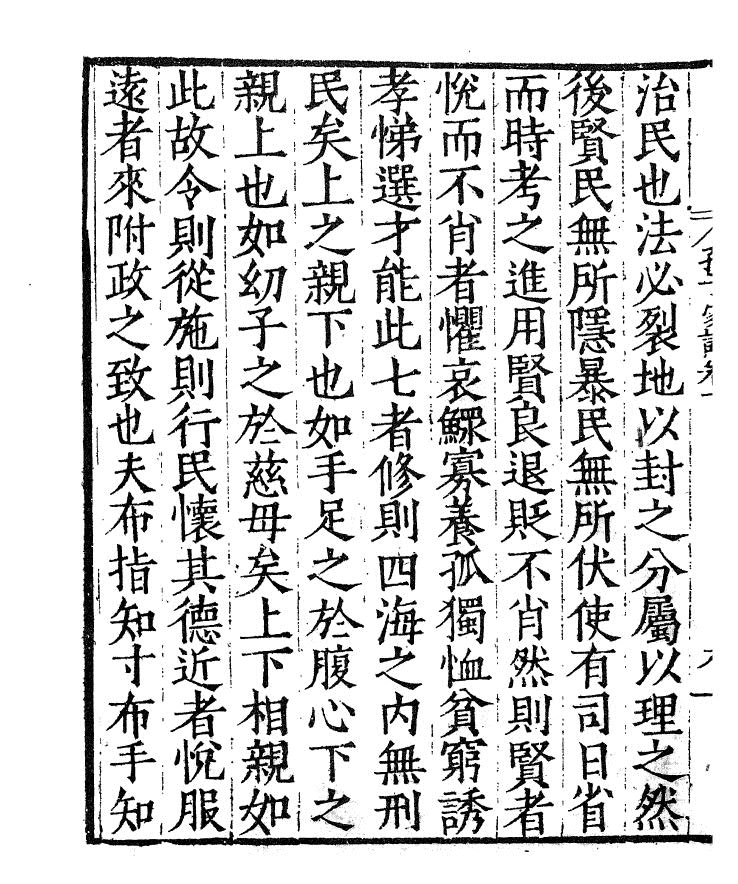 治民也法必裂地以封之分屬以理之然
後賢民無所隱暴民無所伏使有司日省
而時考之進用賢良退貶不肖然則賢者
悅而不肖者懼哀鰥寡養孤獨恤貧窮誘
孝悌選才能此七者修則四海之內無刑
民矣上之親下也如手足之於腹心下之
親上也如幼子之於慈母矣上下相親如
此故令則從施則行民懷其德近者悅服
遠者來附政之致也夫布指知寸布手知